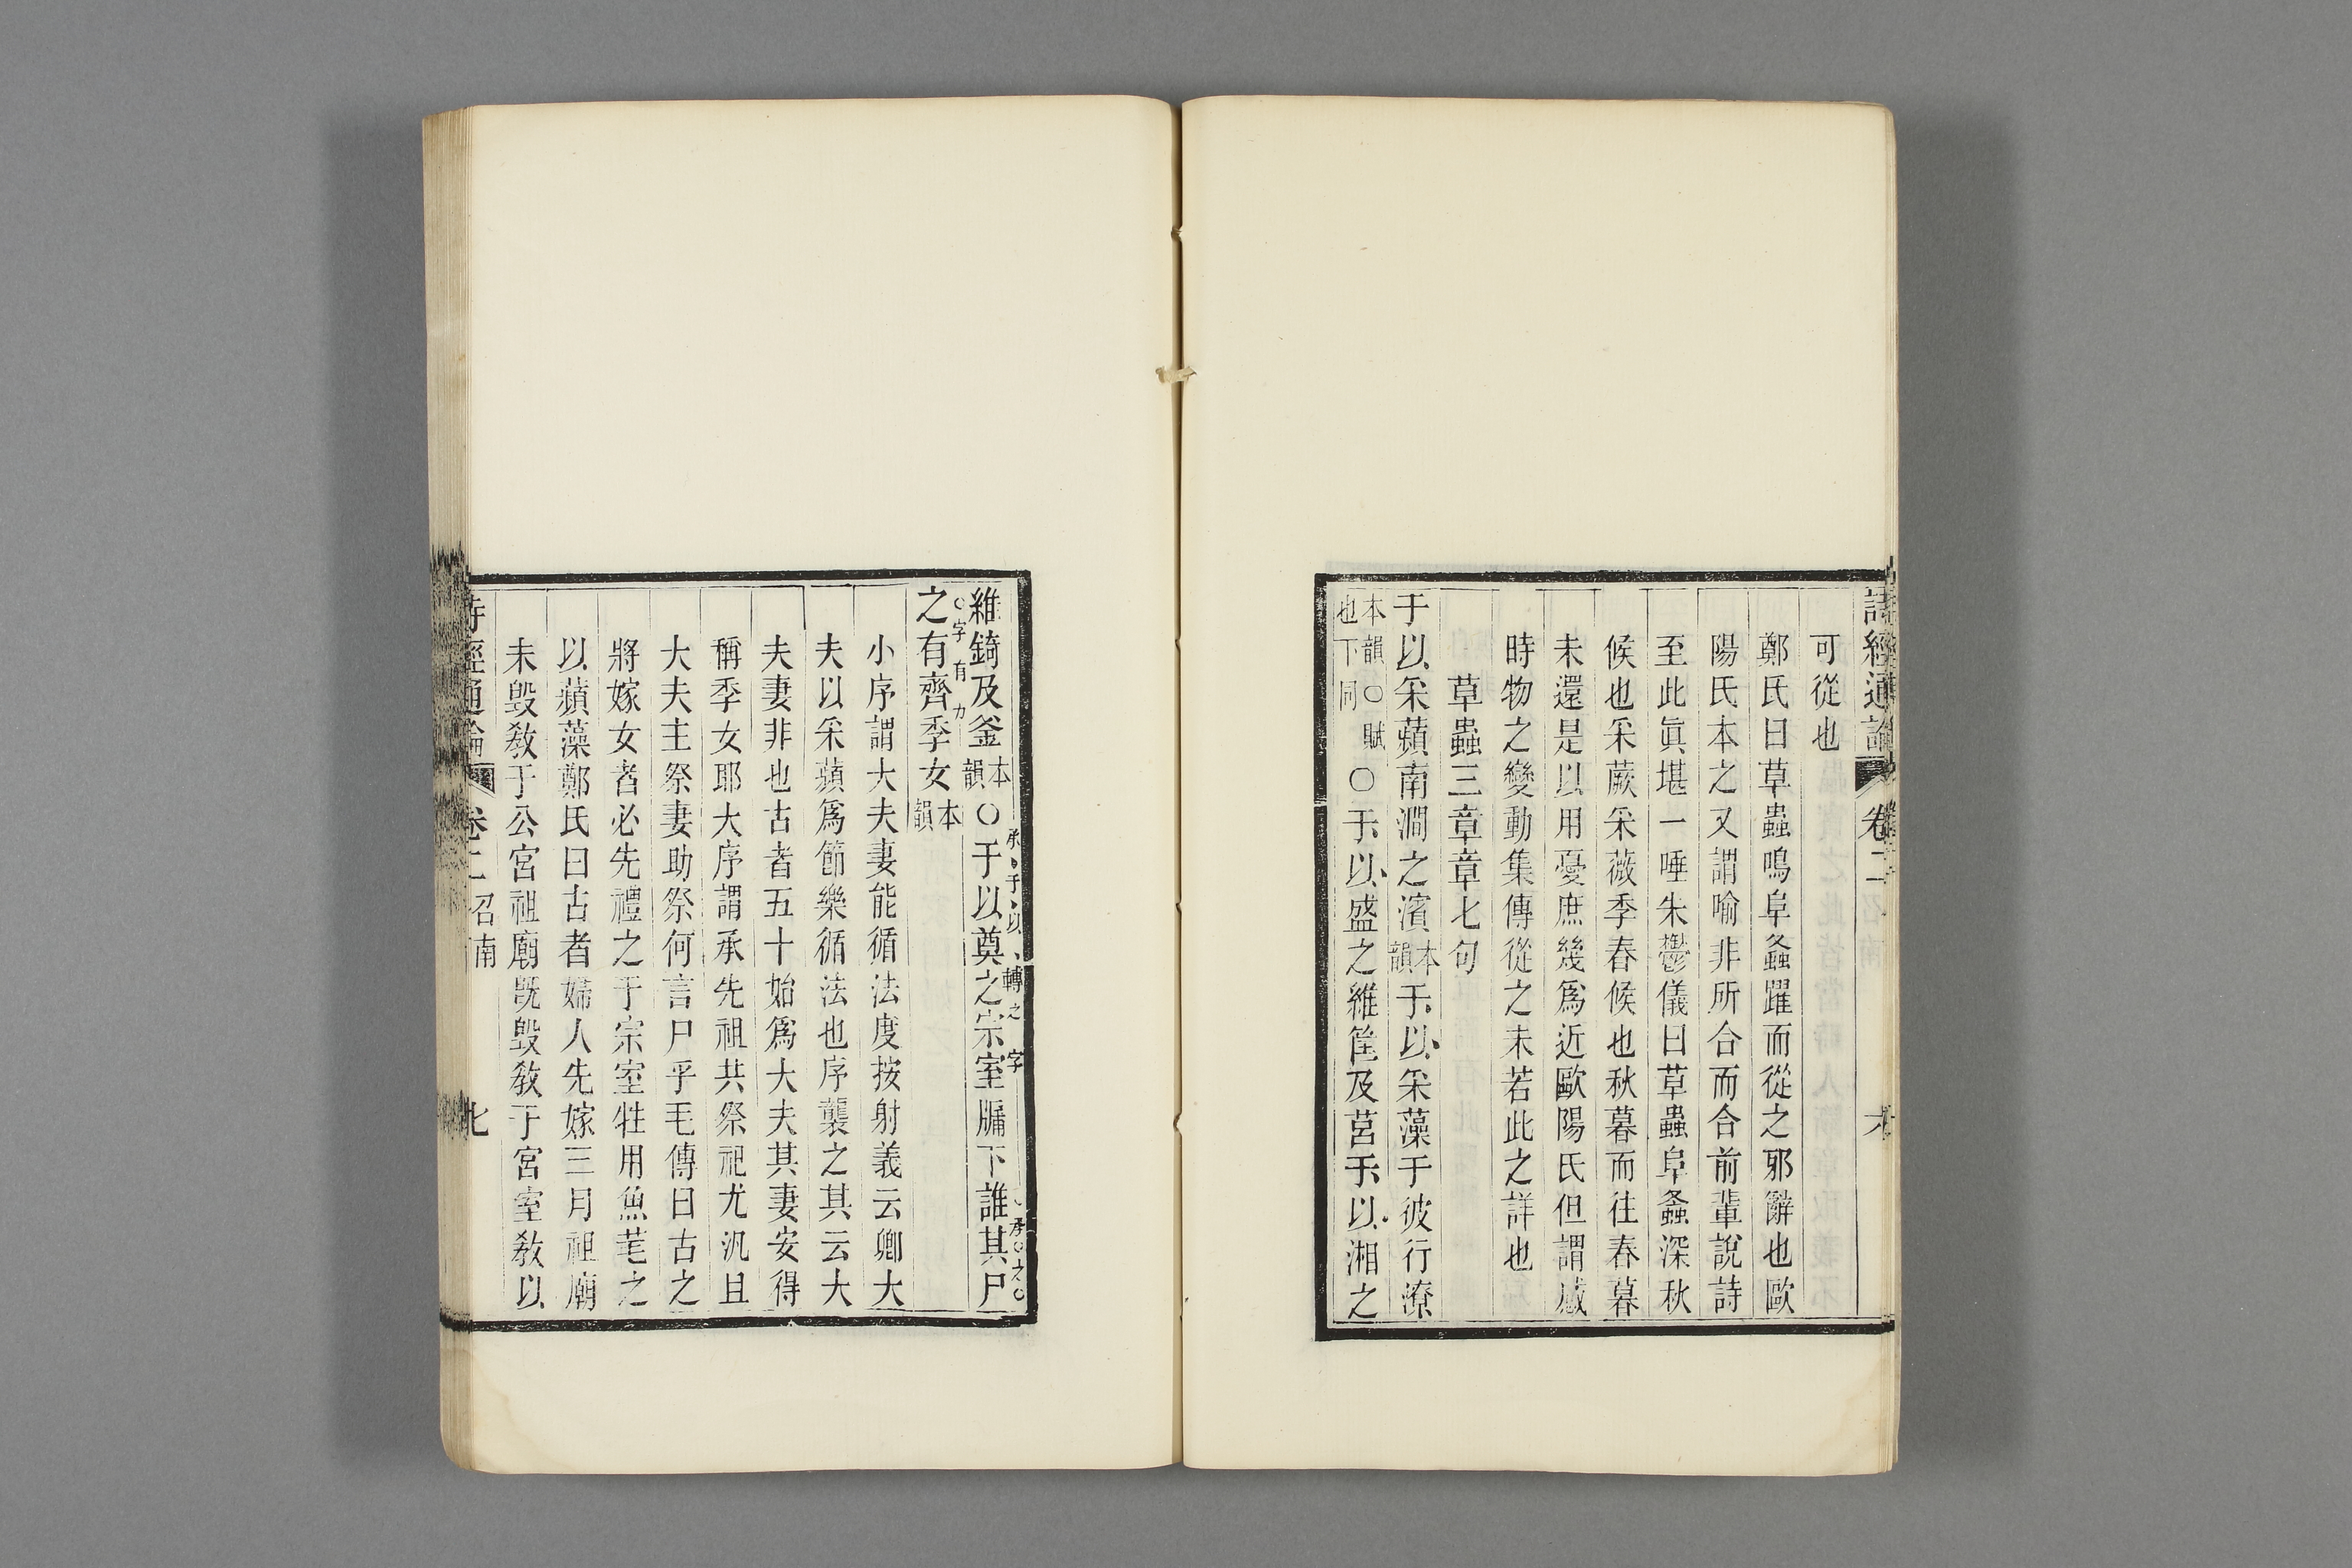 詩經通論 卷二 召南 六
可從也
鄭氏曰草蟲鳴阜螽躍而從之邪辭也歐
陽氏本之又謂喻非所合而合前輩說詩
至此眞堪一唾朱鬱儀曰草蟲阜螽深秋
候也采蕨采薇季春候也秋暮而往春暮
未還是以用憂庶幾爲近歐陽氏但謂感
時物之變動集傳從之未若此之詳也
草蟲三章章七句
于以采蘋南澗之濱本韻于以采藻于彼行潦
本韻○賦也下同○于以盛之維筐及筥于以湘之
維錡及釜本韻○于以奠之宗室牖下誰其尸
承于以轉之字
承之
之有齊季女本韻
字有力
小序謂大夫妻能循法度按射義云卿大
夫以采蘋爲節樂循法也序襲之其云大
夫妻非也古者五十始爲大夫其妻安得
稱季女耶大序謂承先祖共祭祀尤汎且
大夫主祭妻助祭何言尸乎毛傳曰古之
將嫁女者必先禮之于宗室牲用魚芼之
以蘋藻鄭氏曰古者婦人先嫁三月祖廟
未毀敎于公宮祖廟旣毀敎于宮室敎以
詩經通論 卷二 召南 七